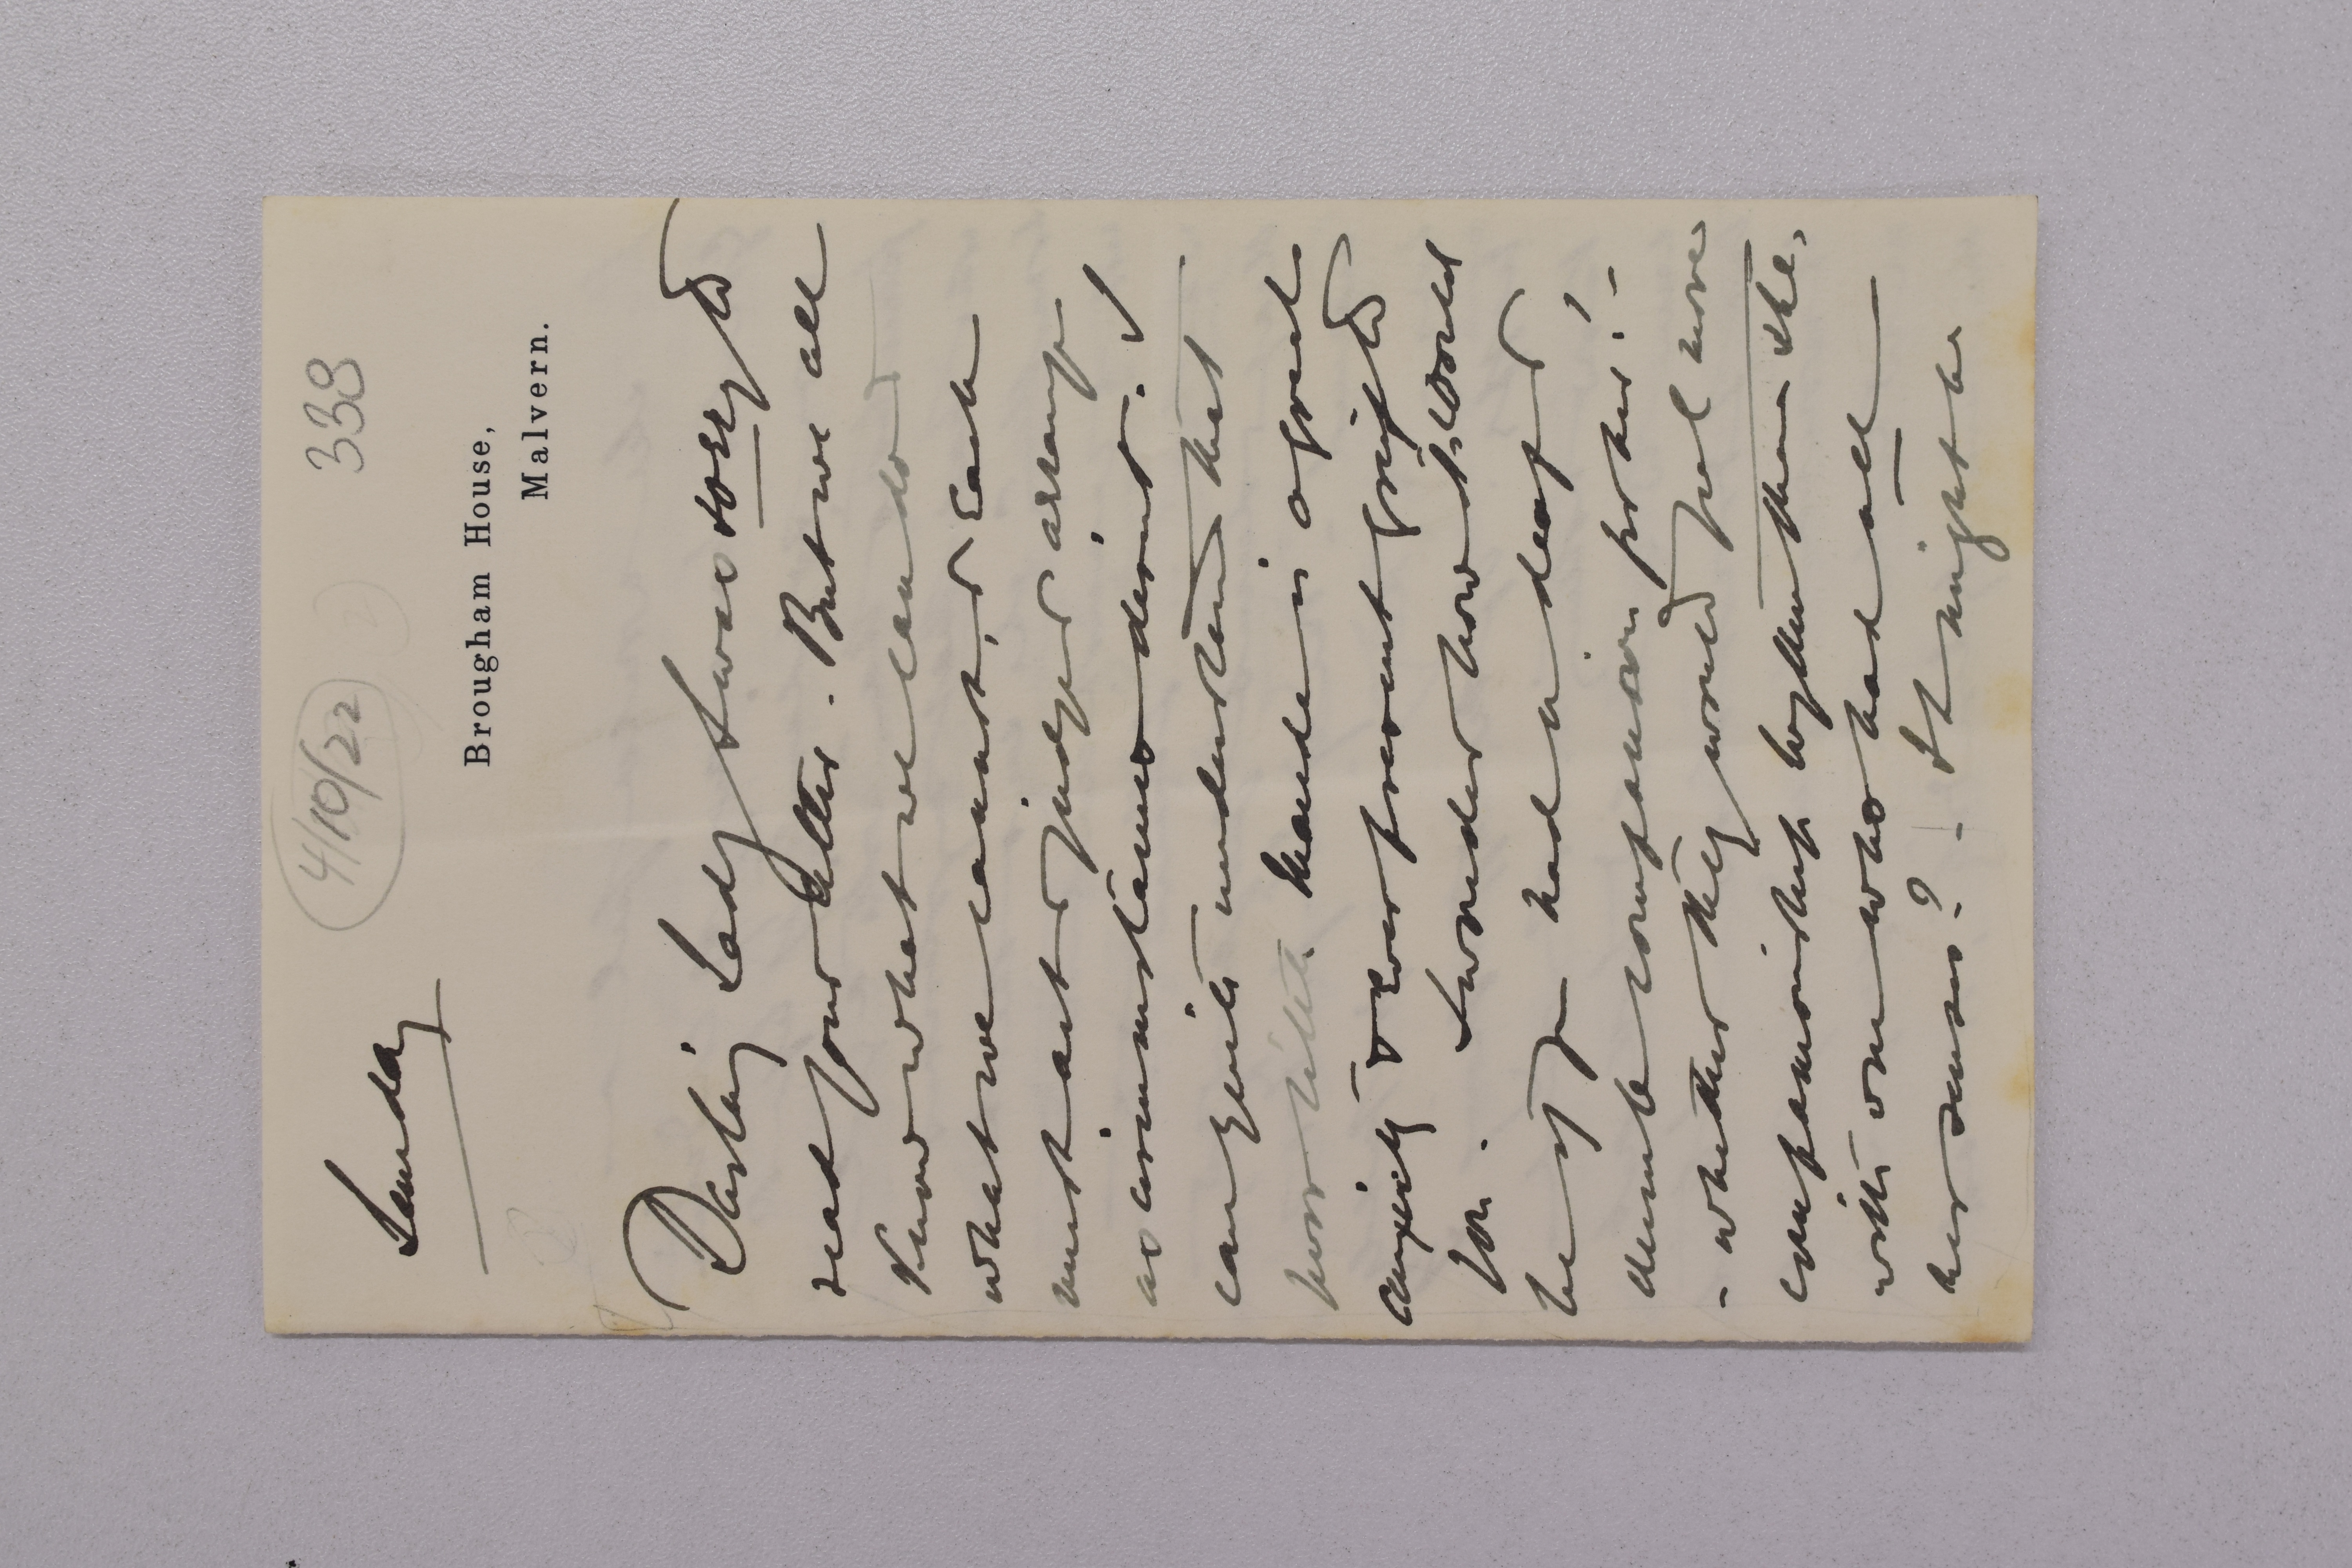 4/10/22
338
Sunday
Brougham House,
Malvern.
Darling Lady I was so sorry to
read your letter. But we all
know what we can do &
what we cannot, & each
must act & judge & arrange
as circumstances demand.
I can quite understand that
poor little Maude is a great
anxiety & ever present grief to
you. I wonder how it would
be if you had a deaf &
dumb companion for her! -
- whether they would feel more
companionship together than she,
with one who had all
her senses? - It might be